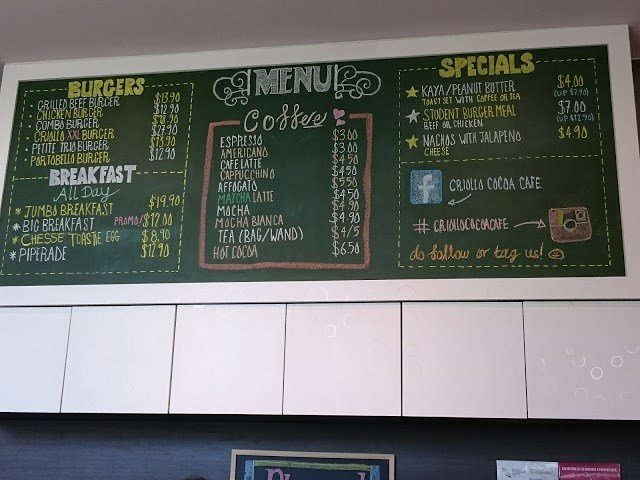 BURGERS
• GRILLED BEEF BURGER $13.90
• CHICKEN BURGER $12.90
• COMBO BURGER $18.90
• CRIOLLO XXL BURGER $27.90
• PETITE TRIO BURGER $13.90
• PORTOBELLO BURGER $12.90
BREAKFAST
All Day
* JUMBO BREAKFAST $19.90
* BIG BREAKFAST PROMO/$12.00
* CHESSE TOASTIE EGG $8.90
* PIPERADE $12.90
MENU
Coffee
ESPRESSO $3.00
AMERICANO $3.00
CAFE LATTE $4.50
CAPPUCCINO $4.50
AFFOGATO $5.50
MATCHA LATTE $4.50
MOCHA
MOCHA BIANCA $4.90
TEA (BAG/WAND) $4/5
HOT COCOA $6.50
SPECIALS
KAYA/PEANUT BUTTER $4.00
TOAST SET WITH COFFEE OR TEA (UP $7.90)
STUDENT BURGER MEAL $7.00
BEEF OR CHICKEN (UP $12.90)
NACHOS WITH JALAPENO $4.90
CHEESE
f CRIOLLO COCOA CAFE
# CRIOLLOCOCOACAFE
do follow or tag us!